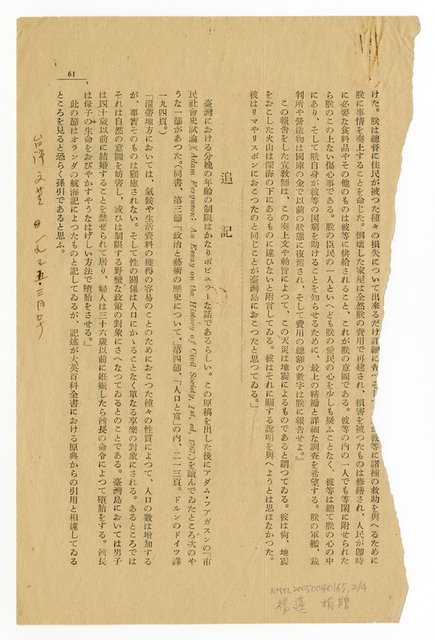 けた。朕は總督に住民が被つた種々の損失について出来るだけ詳細に査べ
が彼等に諸種の救助を與へるために
朕に事情を奏上することを命じた。倒壊した家屋は全然朕の費用で再建され、損害を被つたものは修繕され、人民が卽時
に必要な食料品やその他のものは彼等に供給されること、これが朕の意圖である。彼等の内の一人でも等閑に附せられた
ら朕のこの上ない傷心事である。朕の臣民の一人といへども朕の愛民の心を少しも疑ふことなく、彼等は總て朕の心の中
にあり、そして朕自身が彼等の困窮を助けることを知らせるために、最上の精勵と詳細な調査を希望する。朕の軍艦、裁
判所や營造物は國庫の金で以前の狀態に復舊され、そして費用の總額の數字は朕に報告せよ。』
この報告をした宣教師は、この奏上文や勅旨によつて、この天災は地震によるものであると謂つてゐる。彼は尙、地震
をおこした火山は深海の下にあるものに違ひないと附言してゐる。彼はそれに關する說明を與へようとは思はなかつた。
彼はリマやリスボンにおこつたのと同じことが臺灣島におこつたと思つてゐる。』
追記
臺灣における分娩の年齡の制限はかなりポピュラーな話であるらしい。この原稿を出した後にアダム・フアガスンの「市
民社會史試論」(Adam Ferguson: An Essay on the History of Civil Society, 1st. ed., 1767.)を讀んでゐたところ次のや
うな一節があつた(同書、第三節「政治と藝術の歷史について」第四節、「人口と富」の内、二一三頁、ドルンのドイツ譯
一九四頁。)
「溫帶地方においては、氣候や生活資料の獲得の容易のことのためにおこつた種々の性質によつて、人口の數は增加する
が、事實そのものは顧慮されない。そして性の關係は人口にかゝることなく單なる享樂の對象にされる。あるところでは
それは自然の意圖を妨害し、或ひは制限する野蠻な政策の對象にさへなつてゐるとのことである。臺灣島においては男子
は四十歲以前に結婚することを禁ぜられて居り、婦人は三十六歲以前に姙娠したら酋長の命令によつて墮胎をする。酋長
は母子の生命をおびやかすやうなはげしい方法で墮胎をさせる。」
此の節はオランダの航海記によつたものと記してゐるが、記述が大英百科全書における原典からの引用と相違してゐる
ところを見ると恐らく孫引であると思ふ。
61
NMTL20050040165, 2/4
楊逵 捐贈